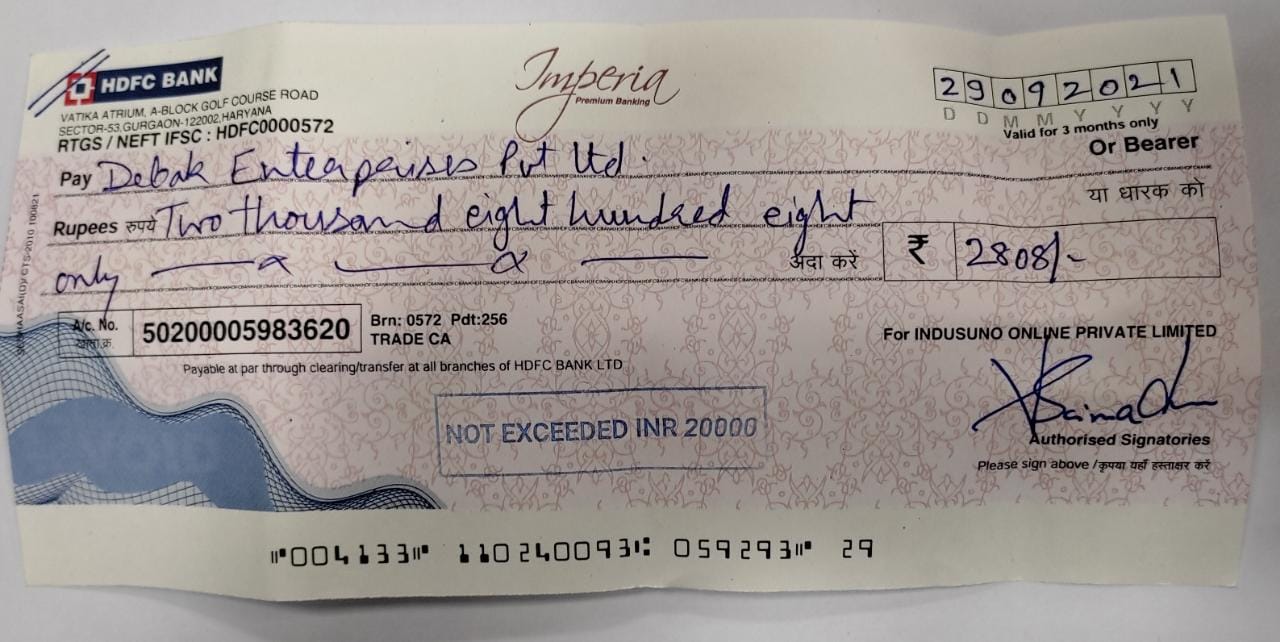 HDFC BANK
VATIKA ATRIUM, A-BLOCK GOLF COURSE ROAD
SECTOR-53,GURGAON-122002,HARYANA
RTGS / NEFT IFSC : HDFC0000572
Imperia
Premium Banking
29092021
D D M M Y Y Y Y
Valid for 3 months only
Pay Debak Enterprises Pvt Ltd. Or Bearer
या धारक को
Rupees रुपये Two thousand eight hundred eight
only अदा करें ₹ 2808/-
A/c. No.
खाता.क्र.
50200005983620
Brn: 0572 Pdt:256
TRADE CA
Payable at par through clearing/transfer at all branches of HDFC BANK LTD
For INDUSUNO ONLINE PRIVATE LIMITED
NOT EXCEEDED INR 20000
Authorised Signatories
Please sign above / कृपया यहाँ हस्ताक्षर करें
⑈004133⑈ 110240093⑆ 059293⑈ 29